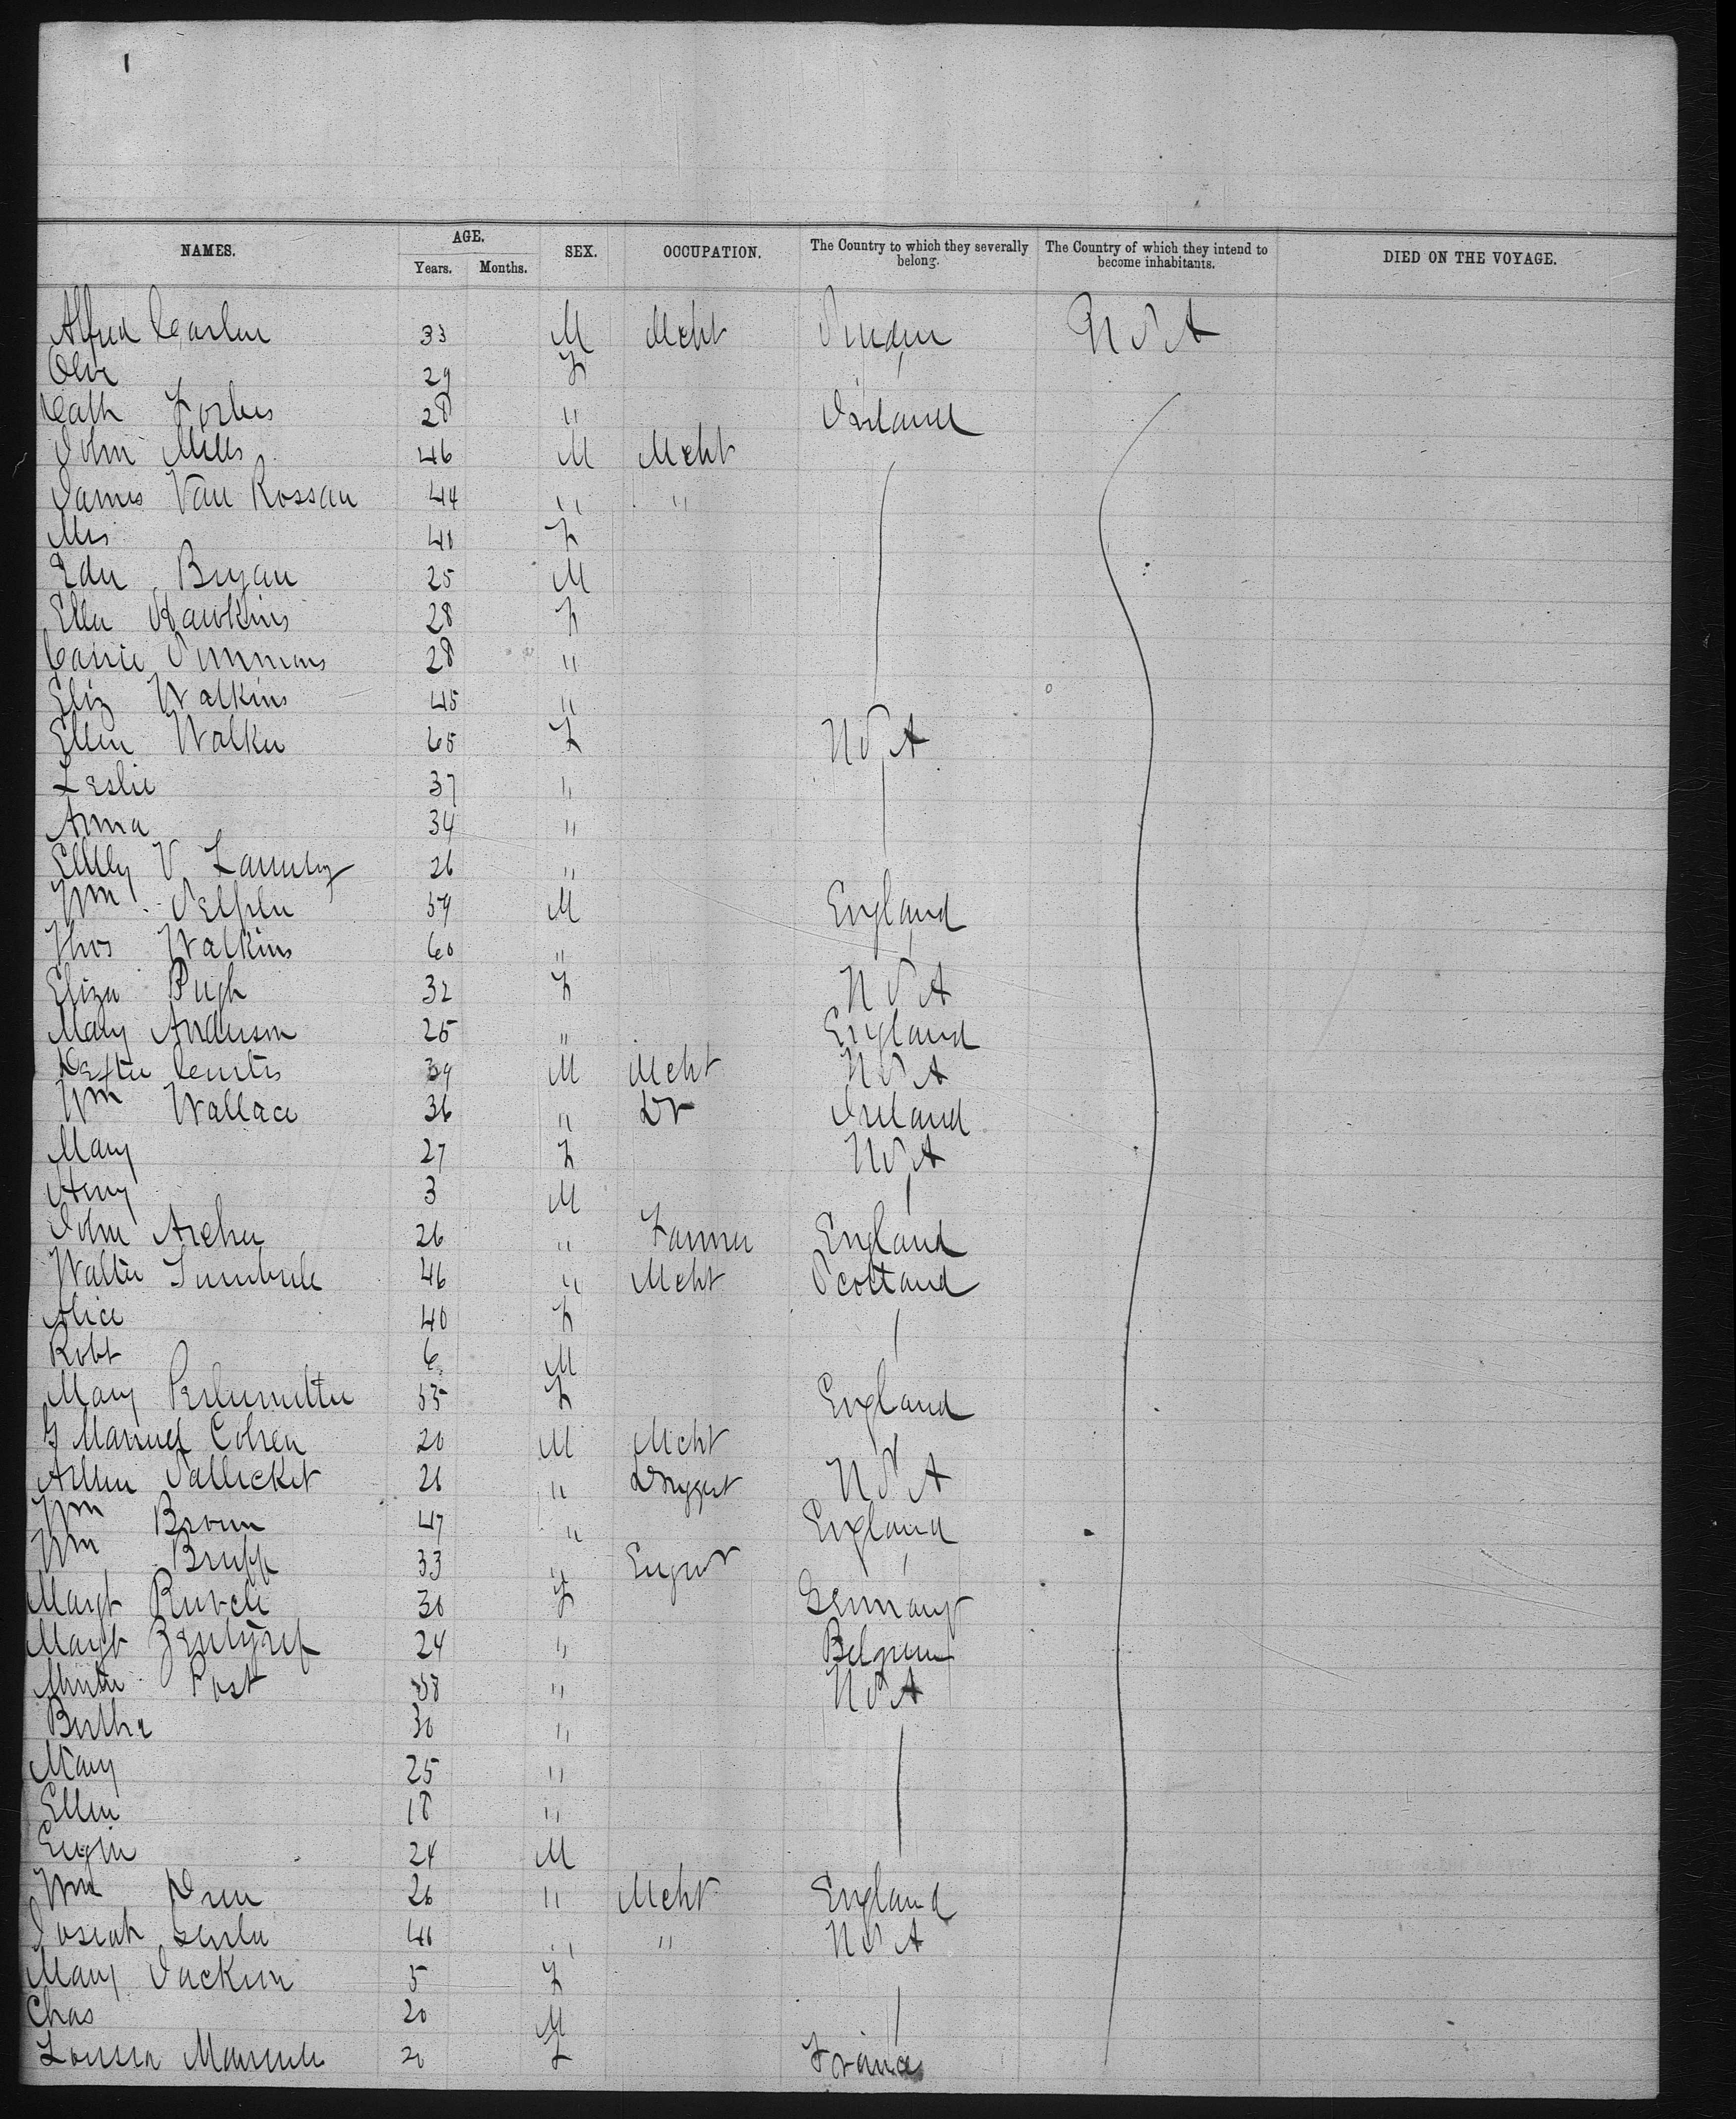 1
NAMES. AGE. Years. Months. SEX. OCCUPATION. The Country to which they severally belong. The Country of which they intend to become inhabitants. DIED ON THE VOYAGE.
Alfred 33 M Mcht U S A
29 F
Cath Forbes 28 " Ireland
John Mills 46 M Mcht
James Van Rossau 44 " "
Mrs 40 F
Edw Bryan 25 M
Ella Hawkins 28 F
Carrie Simmons 28 "
Eliz Watkins 45 "
Ellen Walker 65 F U S A
Leslie 37 "
Anna 34 "
V 26 "
Wm 59 M England
Thos Watkins 60 "
Eliza Pugh 32 F U S A
Mary Anderson 25 " England
Curtis 39 M Mcht U S A
Wm Wallace 36 " Dr Ireland
Mary 27 F U S A
Henry 3 M
John Archer 26 " Farmer England
Walter Turnbull 46 " Mcht Scotland
Alice 40 F
Robt 6 M
Mary 55 F England
Manuel Cohen 20 M Mcht
26 " Druggist U S A
Wm Brown 47 " England
Wm Brupp 33 " Engner
Margt 30 F Germany
Margt 24 " Belgium
Post 58 " U S A
Bertha 30 "
Mary 25 "
Ellen 18 "
24 M
Wm 26 " Mcht England
Josiah 40 " " U S A
Mary Jackson 5 F
Chas 20 M
Louisa 20 F France